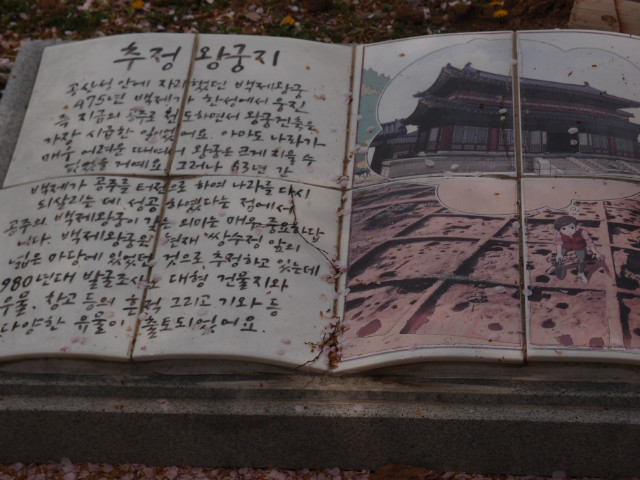 추정 왕궁지
공산성 안에 자리했던 백제왕궁
475년 백제가 한성에서 웅진
즉 지금의 공주로 천도하면서 왕궁건축은
가장 시급한 일이었어요. 아마도 나라가
매우 어려운 때여서 왕궁은 크게 지을 수
없었을 거예요. 그러나 63년 간
백제가 공주를 터전으로 하여 나라를 다시
되살리는 데 성공하였다는 점에서
공주의 백제왕궁이 갖는 의미는 매우 중요하답
니다. 백제왕궁의 현재 쌍수정 앞의
넓은 마당에 있었던 것으로 추정하고 있는데
980년대 발굴조사로 대형 건물지와
우물, 창고 등의 흔적 그리고 기와 등
다양한 유물이 출토되었어요.